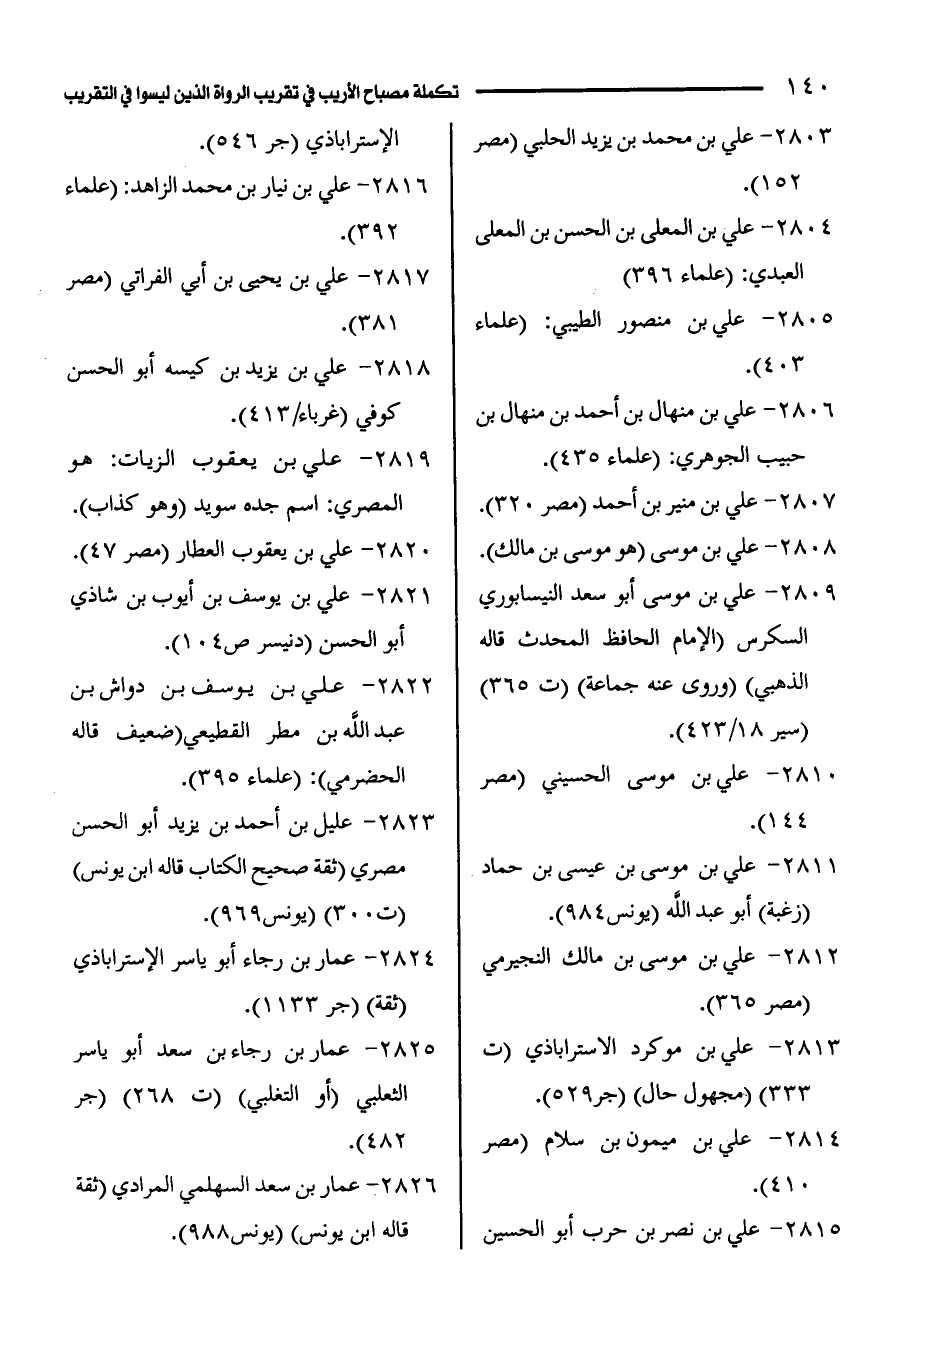 ١٤٠ تكملة مصباح الأريب في تقريب الرواة الذين ليسوا في التقريب
٢٨٠٣- علي بن محمد بن يزيد الحلبي (مصر
١٥٢).
٢٨٠٤- علي بن المعلى بن الحسن بن المعلى
العبدي: (علماء ٣٩٦)
٢٨٠٥- علي بن منصور الطيبي: (علماء
٤٠٣).
٢٨٠٦- علي بن منهال بن أحمد بن منهال بن
حبيب الجوهري: (علماء ٤٣٥).
٢٨٠٧- علي بن منير بن أحمد (مصر ٣٢٠).
٢٨٠٨- علي بن موسى (هو موسى بن مالك).
٢٨٠٩- علي بن موسى أبو سعد النيسابوري
السكرس (الإمام الحافظ المحدث قاله
الذهبي) (وروى عنه جماعة) (ت ٣٦٥)
(سير ٤٢٣/١٨).
٢٨١٠- علي بن موسى الحسيني (مصر
١٤٤).
٢٨١١- علي بن موسى بن عيسى بن حماد
(زغبة) أبو عبد اللَّه (يونس٩٨٤).
٢٨١٢- علي بن موسى بن مالك النجيرمي
(مصر ٣٦٥).
٢٨١٣- علي بن موكرد الاستراباذي (ت
٣٣٣) (مجهول حال) (جر٥٢٩).
٢٨١٤- علي بن ميمون بن سلام (مصر
٤١٠).
٢٨١٥- علي بن نصر بن حرب أبو الحسين
الإستراباذي (جر ٥٤٦).
٢٨١٦- علي بن نيار بن محمد الزاهد: (علماء
٣٩٢).
٢٨١٧- علي بن يحيى بن أبي الفراتي (مصر
٣٨١).
٢٨١٨- علي بن يزيد بن كيسه أبو الحسن
كوفي (غرباء/٤١٣).
٢٨١٩- علي بن يعقوب الزيات: هو
المصري: اسم جده سويد (وهو كذاب).
٢٨٢٠- علي بن يعقوب العطار (مصر ٤٧).
٢٨٢١- علي بن يوسف بن أيوب بن شاذي
أبو الحسن (دنيسر ص١٠٤).
٢٨٢٢- علي بن يوسف بن دواش بن
عبد اللَّه بن مطر القطيعي(ضعيف قاله
الحضرمي): (علماء ٣٩٥).
٢٨٢٣- عليل بن أحمد بن يزيد أبو الحسن
مصري (ثقة صحيح الكتاب قاله ابن يونس)
(ت٣٠٠) (يونس٩٦٩).
٢٨٢٤- عمار بن رجاء أبو ياسر الإستراباذي
(ثقة) (جر ١١٣٣).
٢٨٢٥- عمار بن رجاء بن سعد أبو ياسر
الثعلبي (أو التغلبي) (ت ٢٦٨) (جر
٤٨٢).
٢٨٢٦- عمار بن سعد السهلمي المرادي (ثقة
قاله ابن يونس) (يونس٩٨٨).